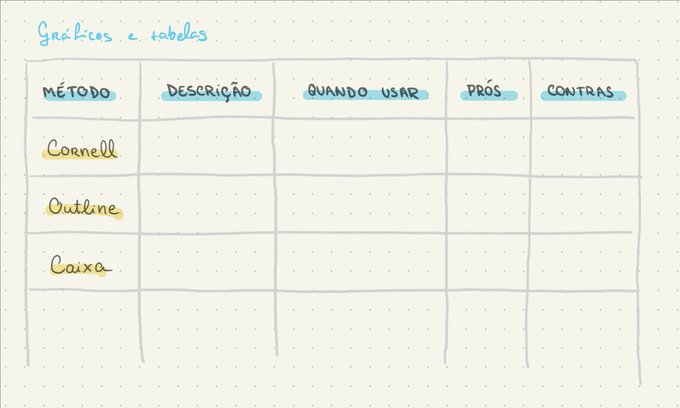 Gráficos e tabelas
MÉTODO DESCRIÇÃO QUANDO USAR PRÓS CONTRAS
Cornell
Outline
Caixa